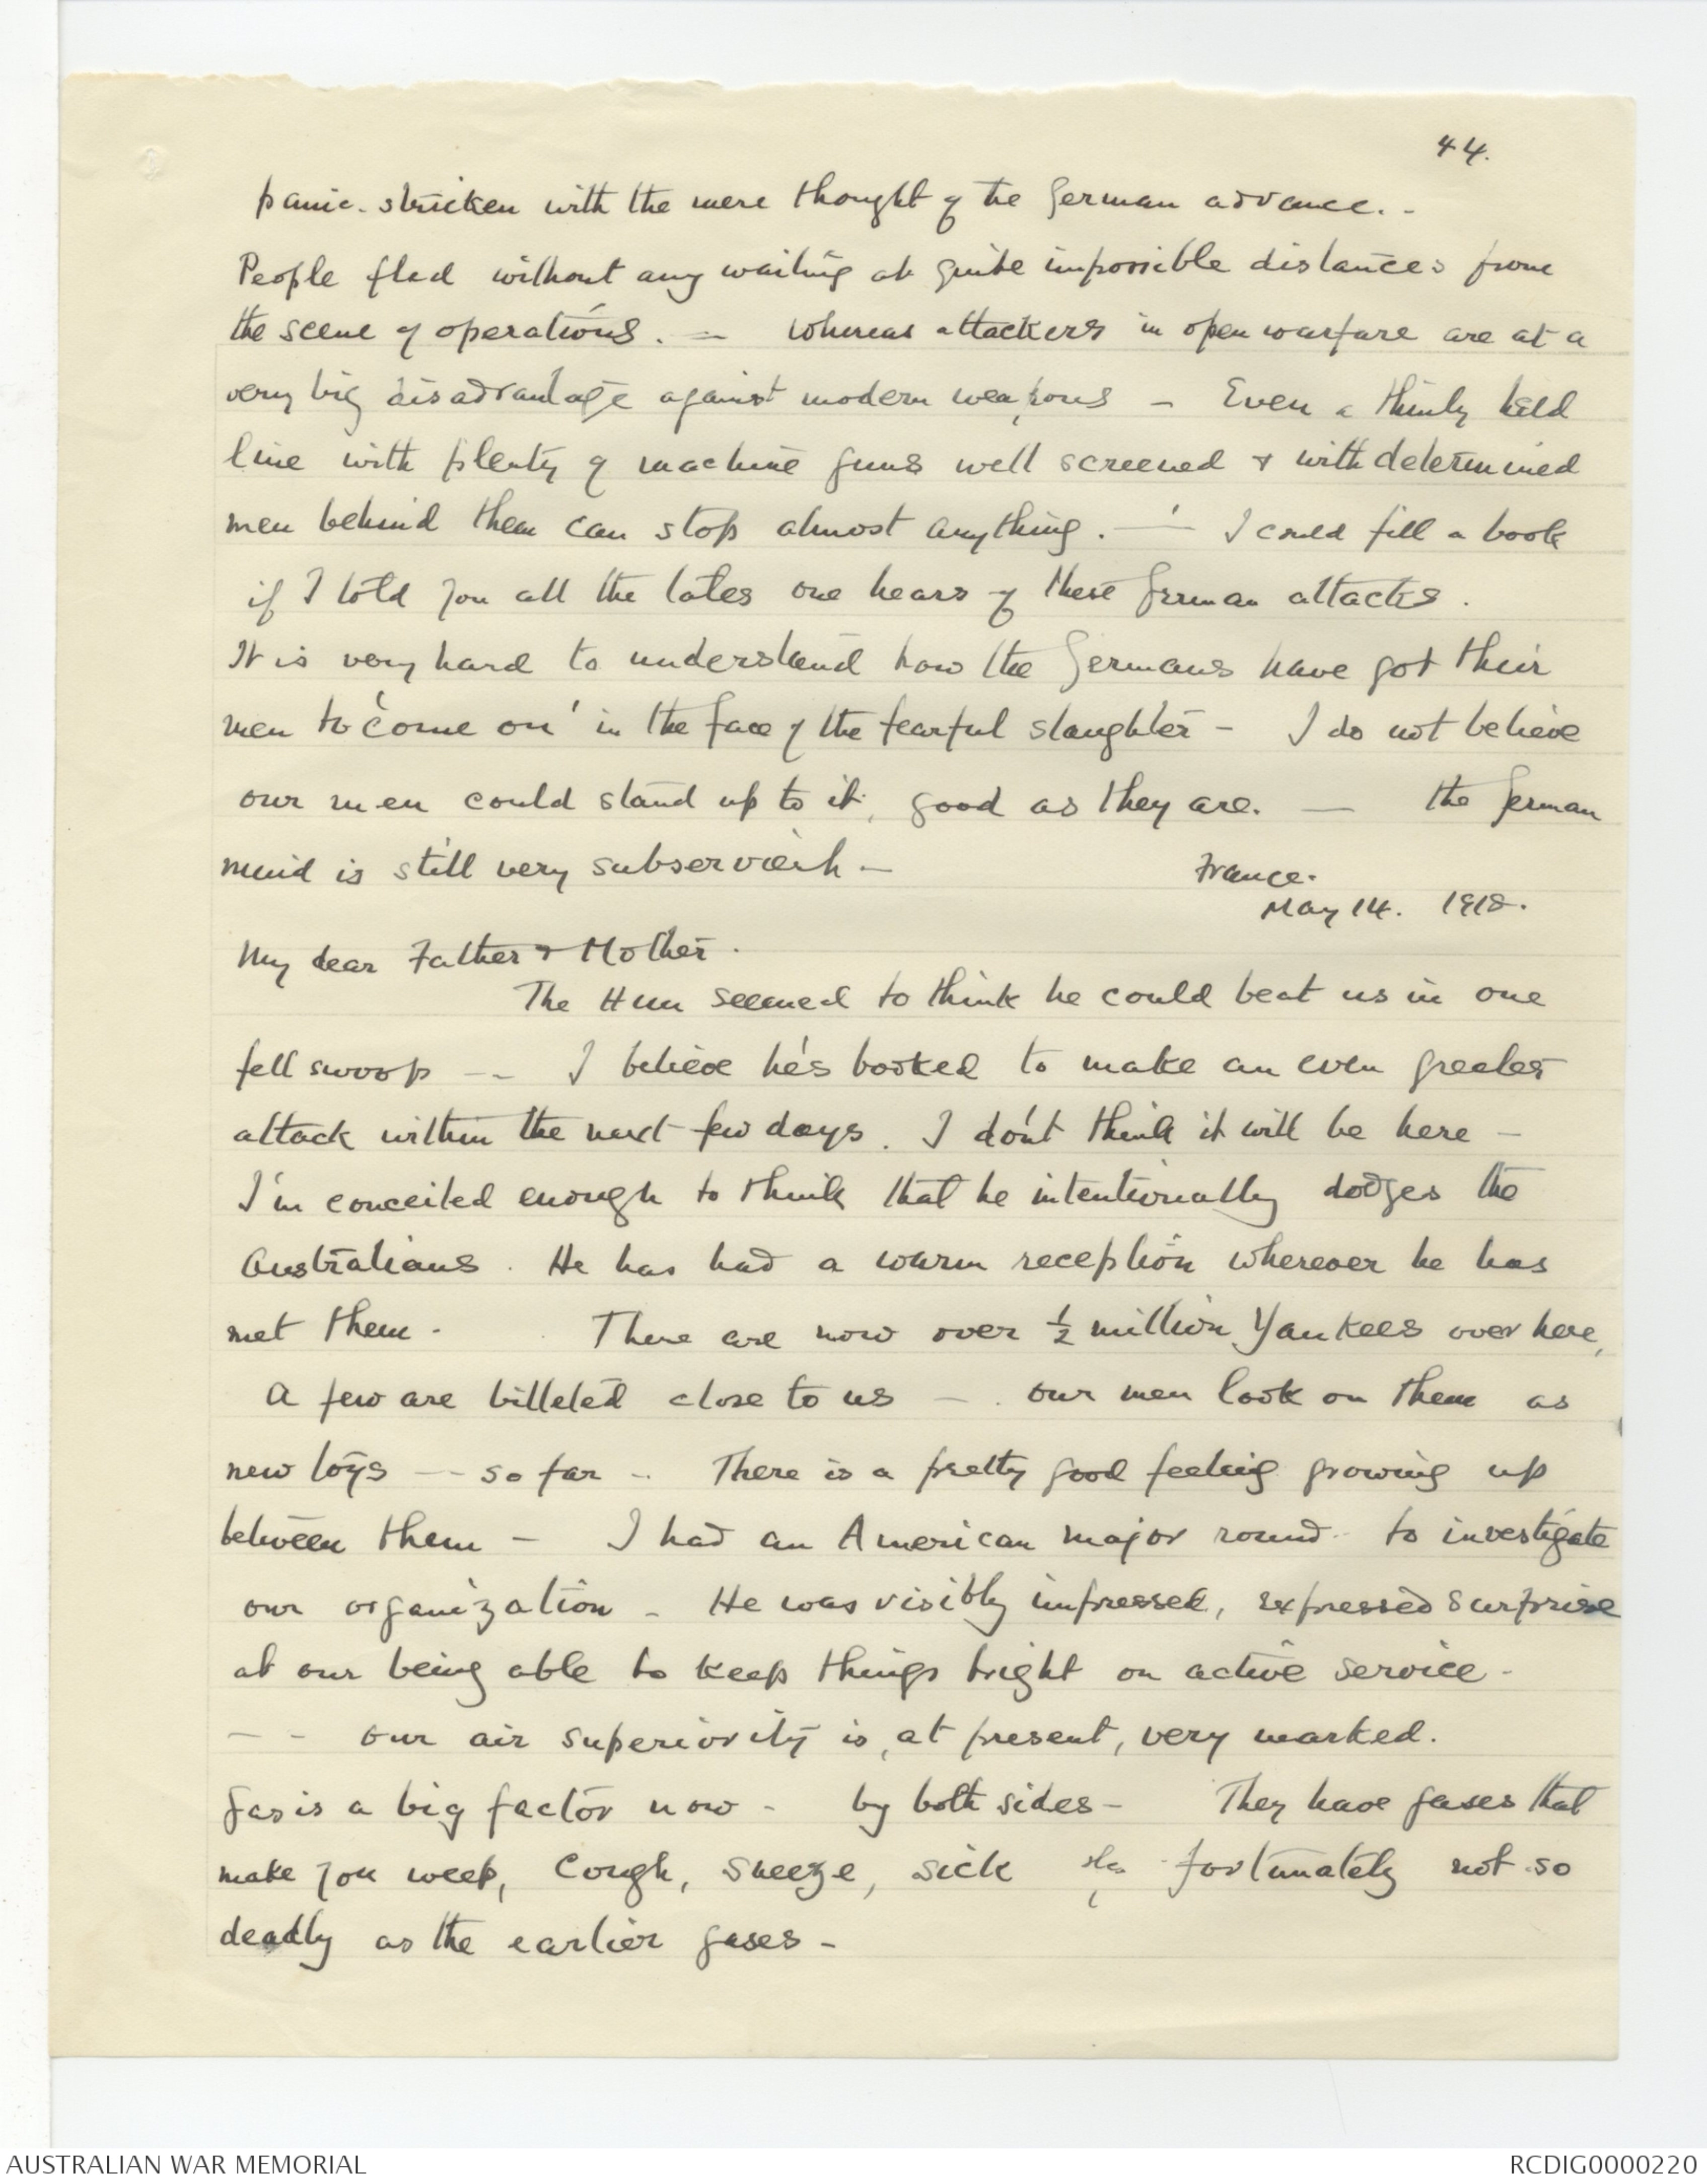 44.
panic-stricken with the mere thought of the German advance. -
People fled without any waiting at quite impossible distances from
the scene of operations. - Whereas attackers in open warfare are at a
very big disadvantage against modern weapons - Even a thinly held
line with plenty of machine guns well screened & with determined
men behind them can stop almost anything. - I could fill a book
if I told you all the tales one hears of these German attacks.
It is very hard to understand how the Germans have got their
men to 'come on' in the face of the fearful slaughter - I do not believe
our men could stand up to it, good as they are. - the German
mind is still very subservient -
France.
May 14. 1918.
My dear Father & Mother.
The Hun seemed to think he could beat us in one
fell swoop -- I believe he's booked to make an even greater
attack within the next few days. I don't think it will be here -
I'm conceited enough to think that he intentionally dodges the
Australians. He has had a warm reception wherever he has
met them. There are now over ½ million Yankees over here,
A few are billeted close to us - . our men look on them as
new toys -- so far -. There is a pretty good feeling growing up
between them - I had an American major round to investigate
our organization - He was visibly impressed, expressed surprise
at our being able to keep things bright on active service -
-- our air superiority is, at present, very marked.
Gas is a big factor now - by both sides - They have gases that
make you weep, cough, sneeze, sick etc fortunately not so
deadly as the earlier gases -
AUSTRALIAN WAR MEMORIAL
RCDIG0000220